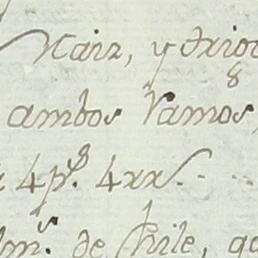 Maiz, y trigo
ambos Ramos,
4 p.s 4 rr.s
de Chile, q